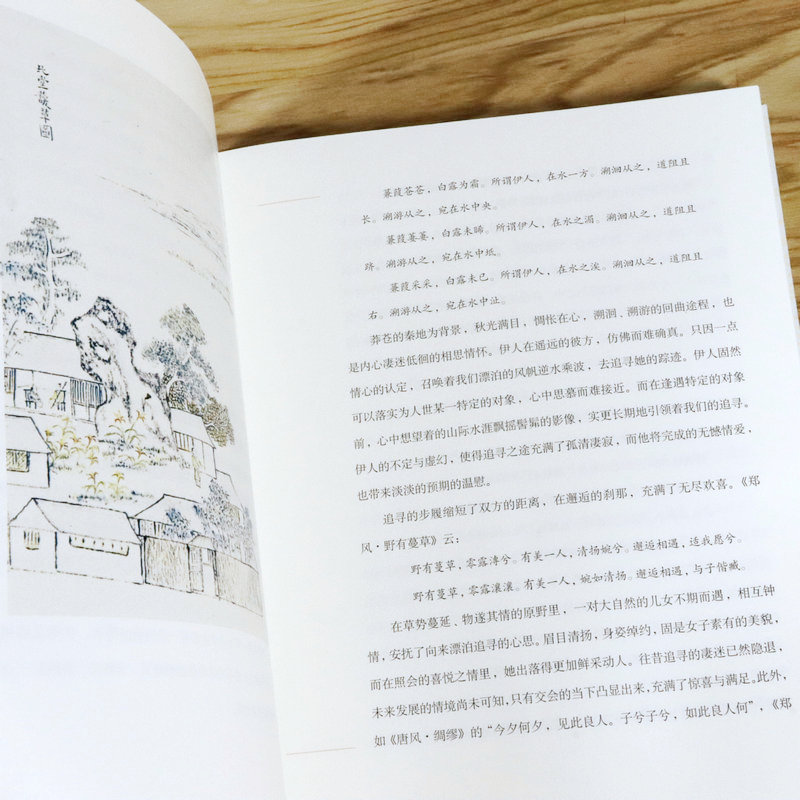 北堂萲草圖
蒹葭苍苍，白露为霜。所谓伊人，在水一方。溯洄从之，道阻且
长。溯游从之，宛在水中央。
蒹葭萋萋，白露未晞。所谓伊人，在水之湄。溯洄从之，道阻且
跻。溯游从之，宛在水中坻。
蒹葭采采，白露未已。所谓伊人，在水之涘。溯洄从之，道阻且
右。溯游从之，宛在水中沚。
莽苍的秦地为背景，秋光满目，惆怅在心，溯洄、溯游的回曲途程，也
是内心凄迷低徊的相思情怀。伊人在遥远的彼方，仿佛而难确真。只因一点
情心的认定，召唤着我们漂泊的风帆逆水乘波，去追寻她的踪迹。伊人固然
可以落实为人世某一特定的对象，心中思慕而难接近。而在逢遇特定的对象
前，心中想望着的山际水涯飘摇髣髴的影像，实更长期地引领着我们的追寻。
伊人的不定与虚幻，使得追寻之途充满了孤清凄寂，而他将完成的无憾情爱，
也带来淡淡的预期的温慰。
追寻的步履缩短了双方的距离，在邂逅的刹那，充满了无尽欢喜。《郑
风·野有蔓草》云：
野有蔓草，零露漙兮。有美一人，清扬婉兮。邂逅相遇，适我愿兮。
野有蔓草，零露瀼瀼。有美一人，婉如清扬。邂逅相遇，与子偕臧。
在草势蔓延、物遂其情的原野里，一对大自然的儿女不期而遇，相互钟
情，安抚了向来漂泊追寻的心思。眉目清扬，身姿绰约，固是女子素有的美貌，
而在照会的喜悦之情里，她出落得更加鲜采动人。往昔追寻的凄迷已然隐退，
未来发展的情境尚未可知，只有交会的当下凸显出来，充满了惊喜与满足。此外，
如《唐风·绸缪》的“今夕何夕，见此良人。子兮子兮，如此良人何”，《郑